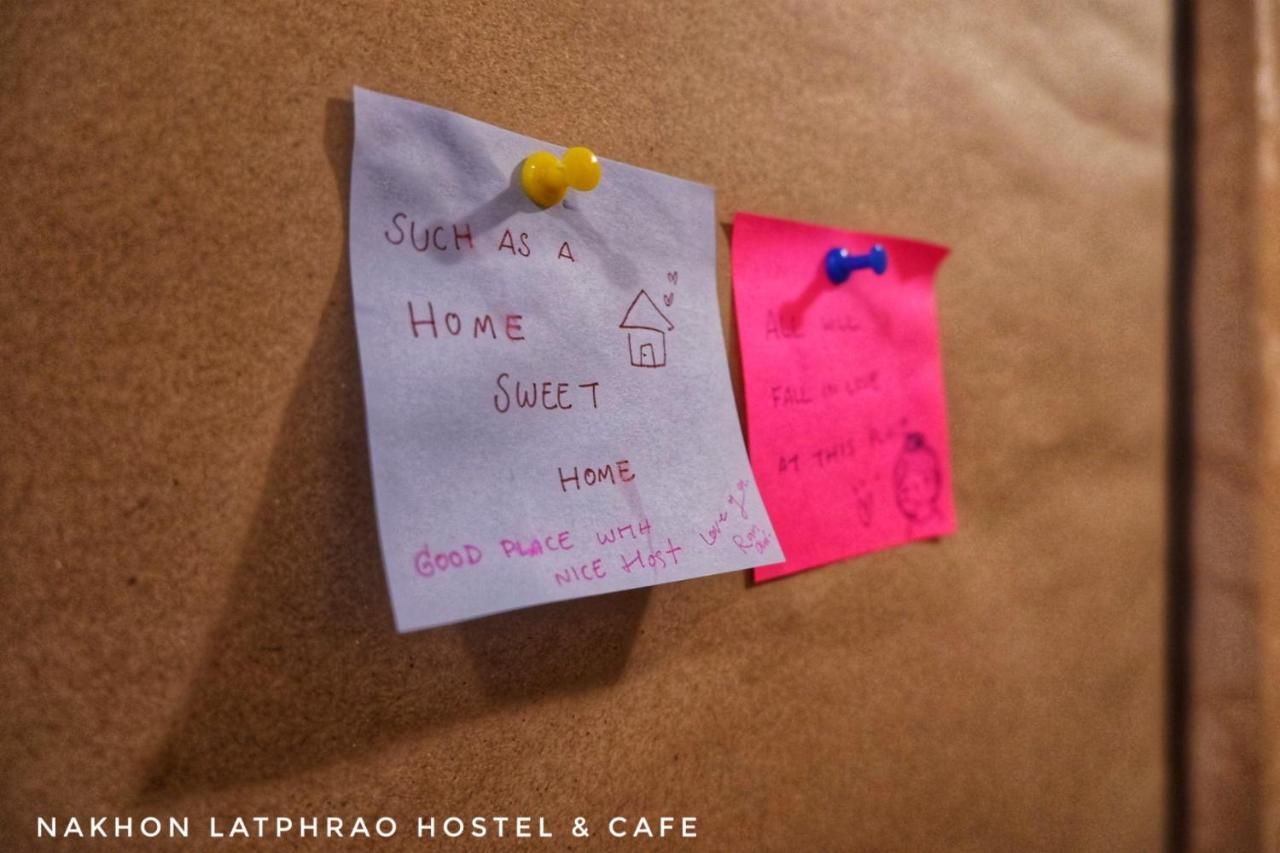 SUCH AS A
HOME
SWEET
HOME
GOOD PLACE WITH
NICE Host
Love ya
ALL WILL
FALL IN LOVE
AT THIS
NAKHON LATPHRAO HOSTEL & CAFE